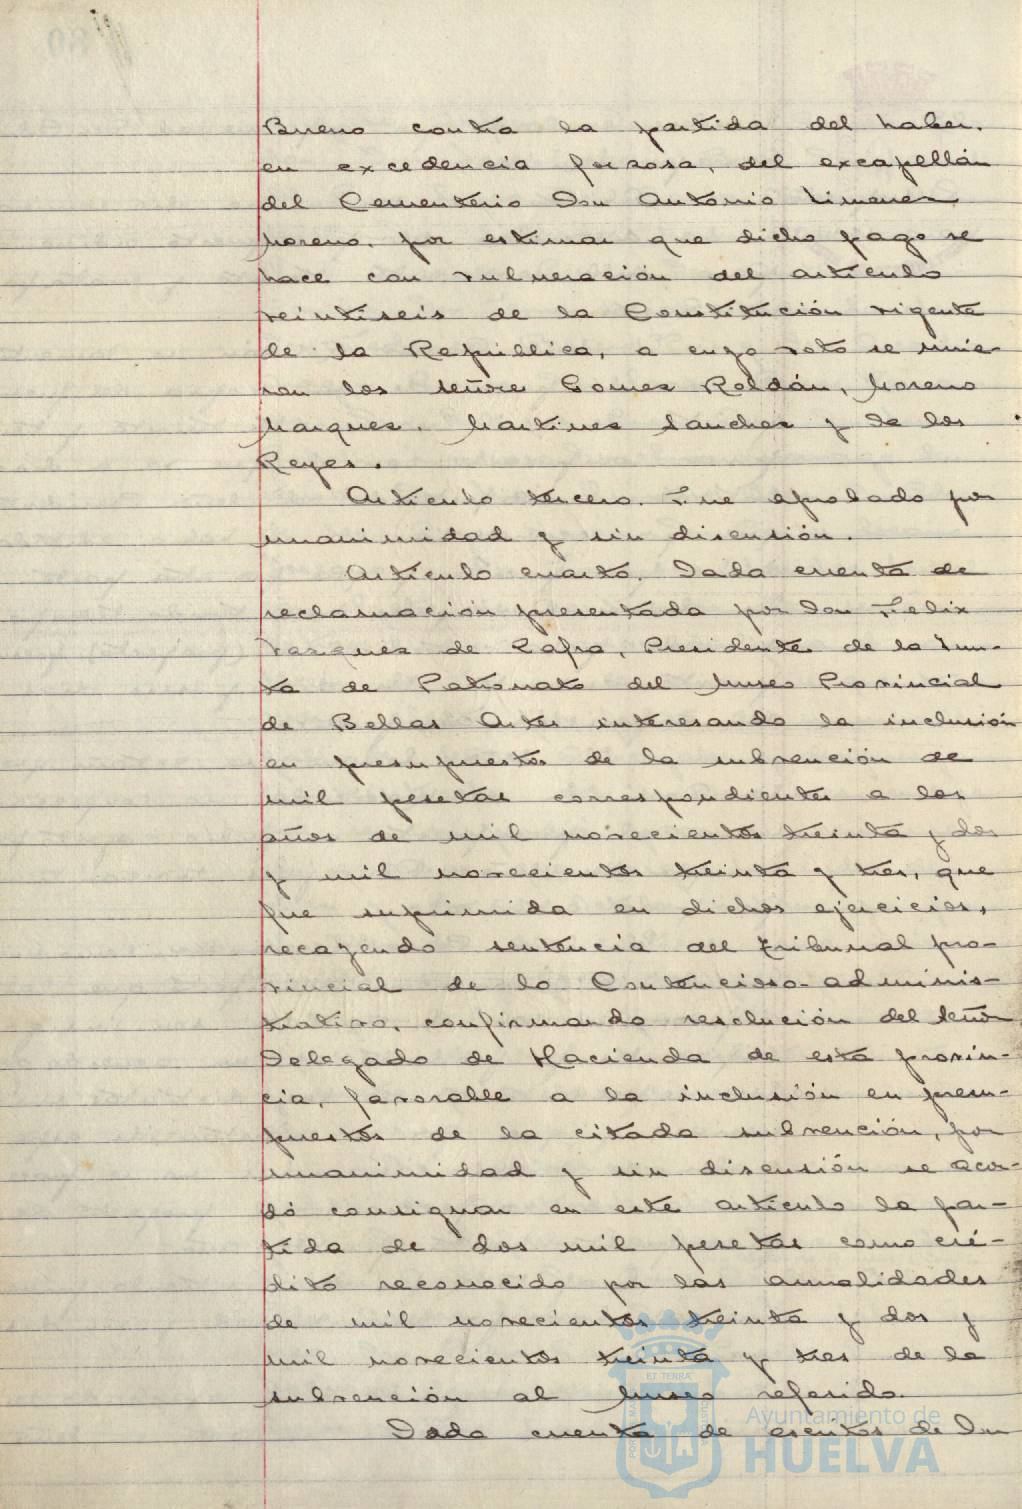 Bueno contra la partida del haber,
en excedencia forzosa, del excapellán
del Cementerio Don Antonio Limenez
Moreno, por estimar que dicho pago se
hace con vulneración del artículo
veintiseis de la Constitución vigente
de la República, a cuyo voto se unie-
ron los señores Gomez Roldán, Moreno
Marquez, Martinez Sanchez y de los
Reyes.
Artículo tercero. Fue aprobado por
unanimidad y sin discusión.
Artículo cuarto. Dada cuenta de
reclamación presentada por Don Felix
Vazquez de Zafra, Presidente de la Jun-
ta de Patronato del Museo Provincial
de Bellas Artes interesando la inclusión
en presupuestos de la subvención de
mil pesetas correspondientes a los
años de mil novecientos treinta y dos
y mil novecientos treinta y tres, que
fue suprimida en dichos ejercicios,
recayendo sentencia del Tribunal pro-
vincial de lo Contencioso-adminis-
trativo, confirmando resolución del Señor
Delegado de Hacienda de esta provin-
cia, favorable a la inclusión en presu-
puestos de la citada subvención, por
unanimidad y sin discusión se acor-
dó consignar en este artículo la par-
tida de dos mil pesetas como cré-
dito reconocido por las anualidades
de mil novecientos treinta y dos y
mil novecientos treinta y tres de la
subvención al Museo referido.
Dada cuenta de escritos de Don
Ayuntamiento de
HUELVA